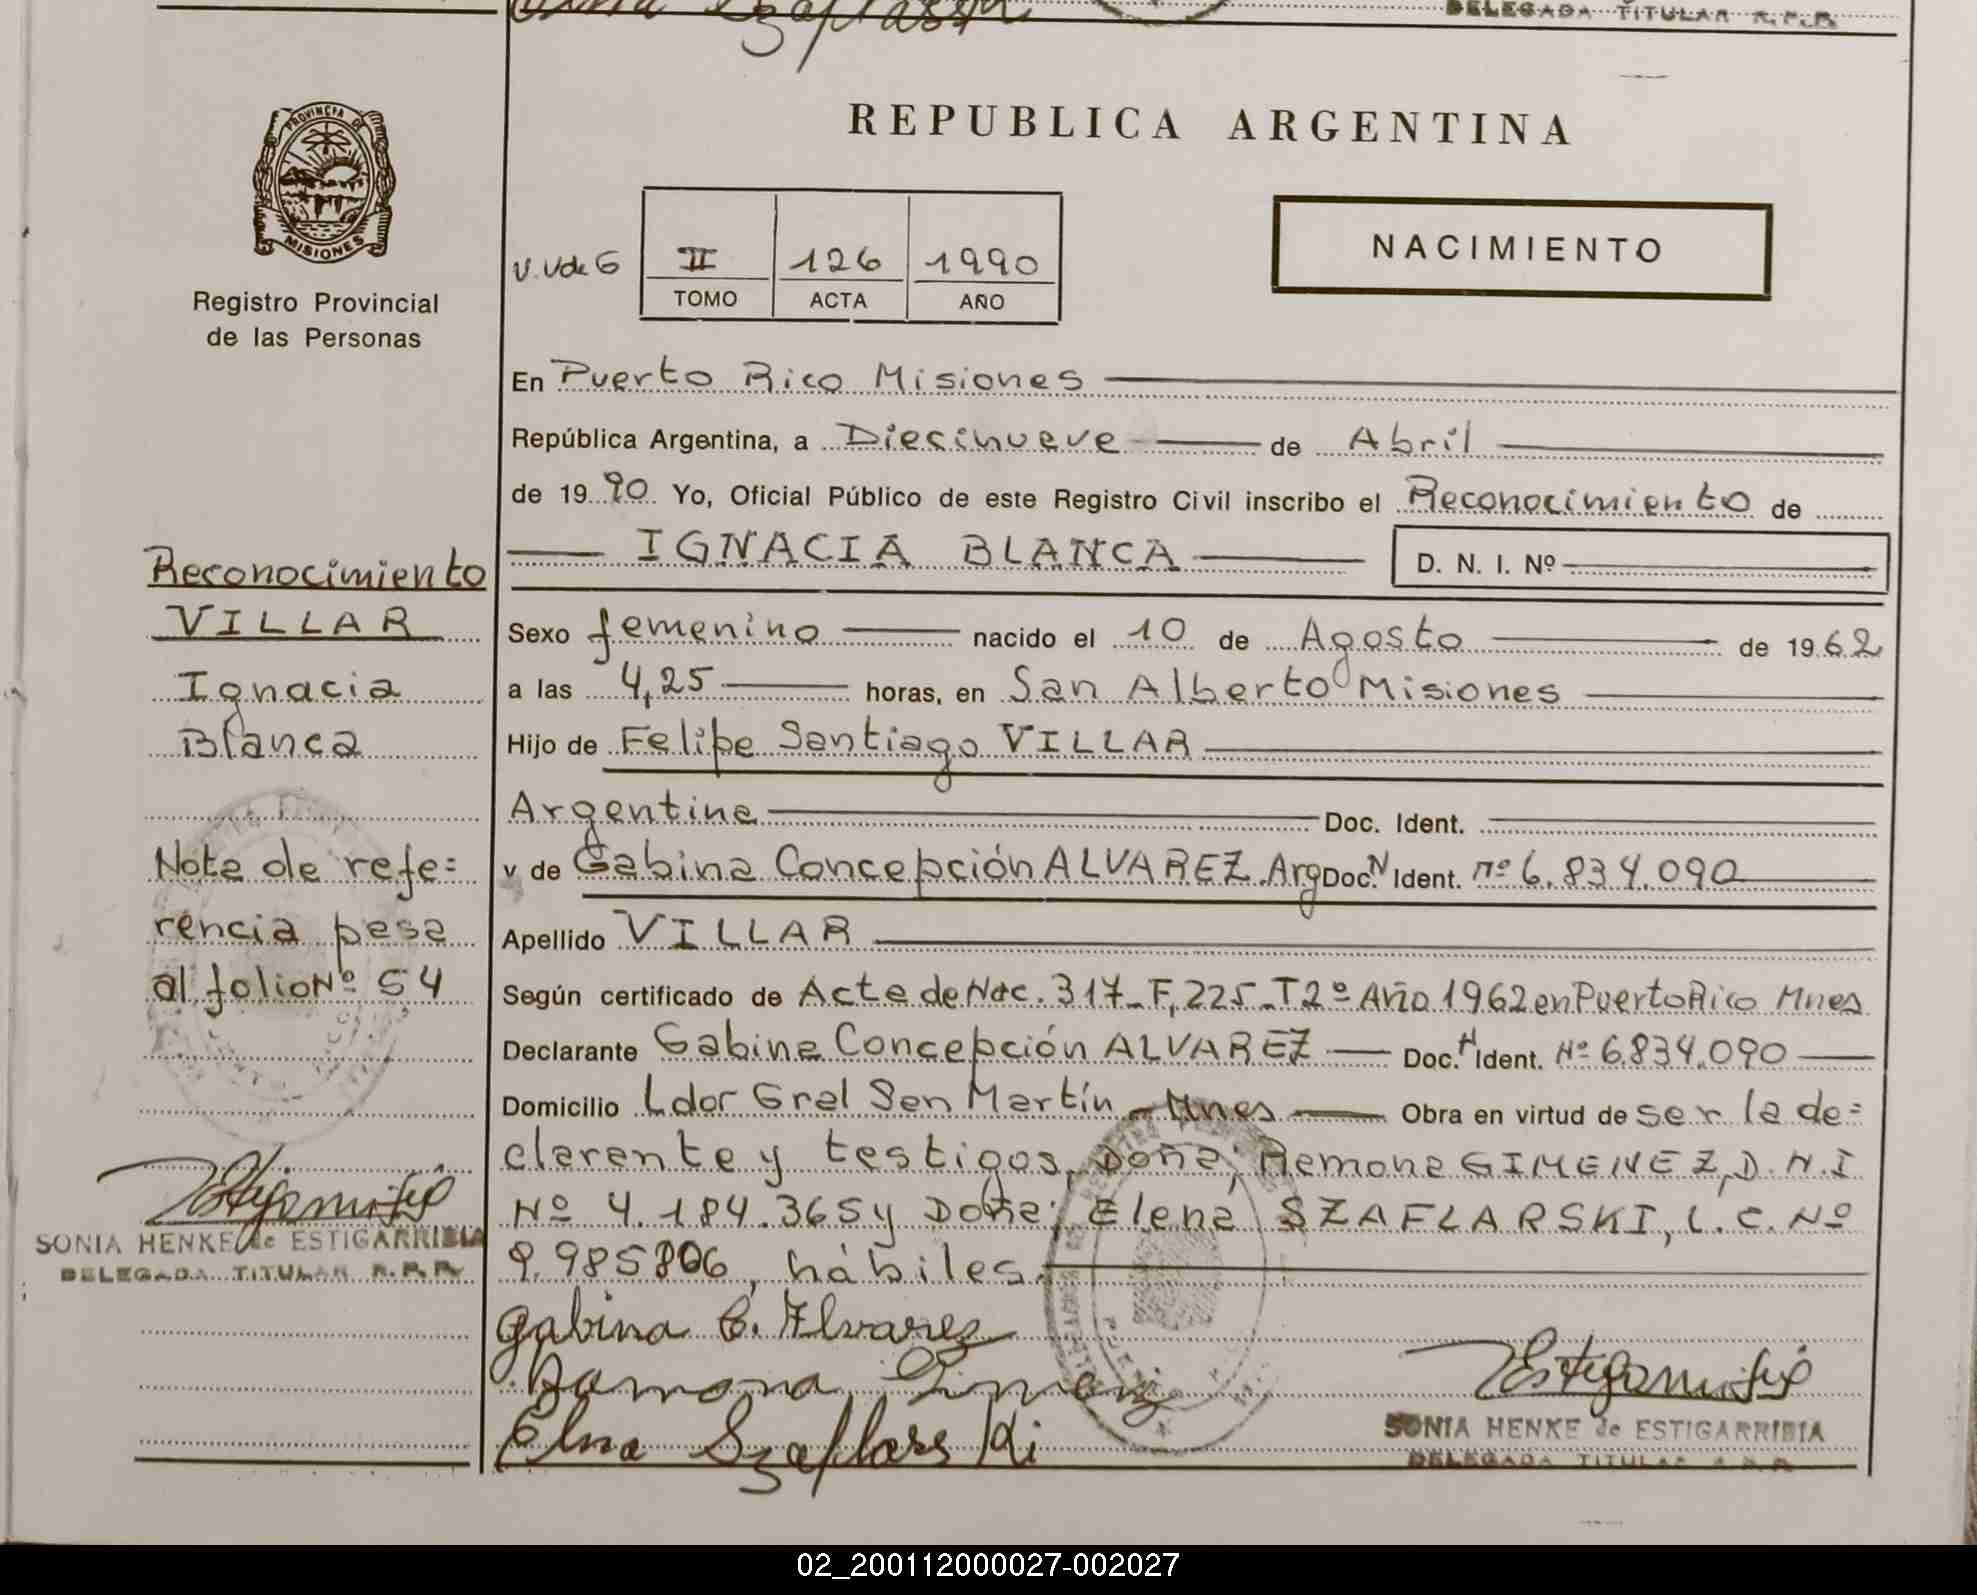 DELEGADA TITULAR R.P.P.
PROVINCIA DE
MISIONES
Registro Provincial
de las Personas
REPUBLICA ARGENTINA
NACIMIENTO
V. V de G
II 126 1990
TOMO ACTA AÑO
En Puerto Rico Misiones
República Argentina, a Diecinueve de Abril
de 1990 Yo, Oficial Público de este Registro Civil inscribo el Reconocimiento de
IGNACIA BLANCA D. N. I. Nº
Sexo femenino nacido el 10 de Agosto de 1962
a las 4,25 horas, en San Alberto Misiones
Hijo de Felipe Santiago VILLAR
Argentina Doc. Ident.
y de Gabina Concepción ALVAREZ. Arg Doc. N Ident. nº 6.834.090
Apellido VILLAR
Según certificado de Acta de Nac. 317_F, 225_T2º Año 1962 en Puerto Rico Mnes
Declarante Gabina Concepción ALVAREZ Doc. N Ident. Nº 6.834.090
Domicilio Ldor Gral San Martín - Mnes Obra en virtud de ser la de=
clarante y testigos, Doña; Ramona GIMENEZ, D.N.I
Nº 4.184.365 y Doña; Elena SZAFLARSKI, L.C. Nº
9.985806, hábiles.
Gabina C. Alvarez
Ramona Gimenez
Elena Szaflarski
SONIA HENKE de ESTIGARRIBIA
DELEGADA TITULAR R.P.P.
Reconocimiento
VILLAR
Ignacia
Blanca
Nota de refe=
rencia pasa
al folio Nº 54
SONIA HENKE de ESTIGARRIBIA
DELEGADA TITULAR R.P.P.
02_200112000027-002027